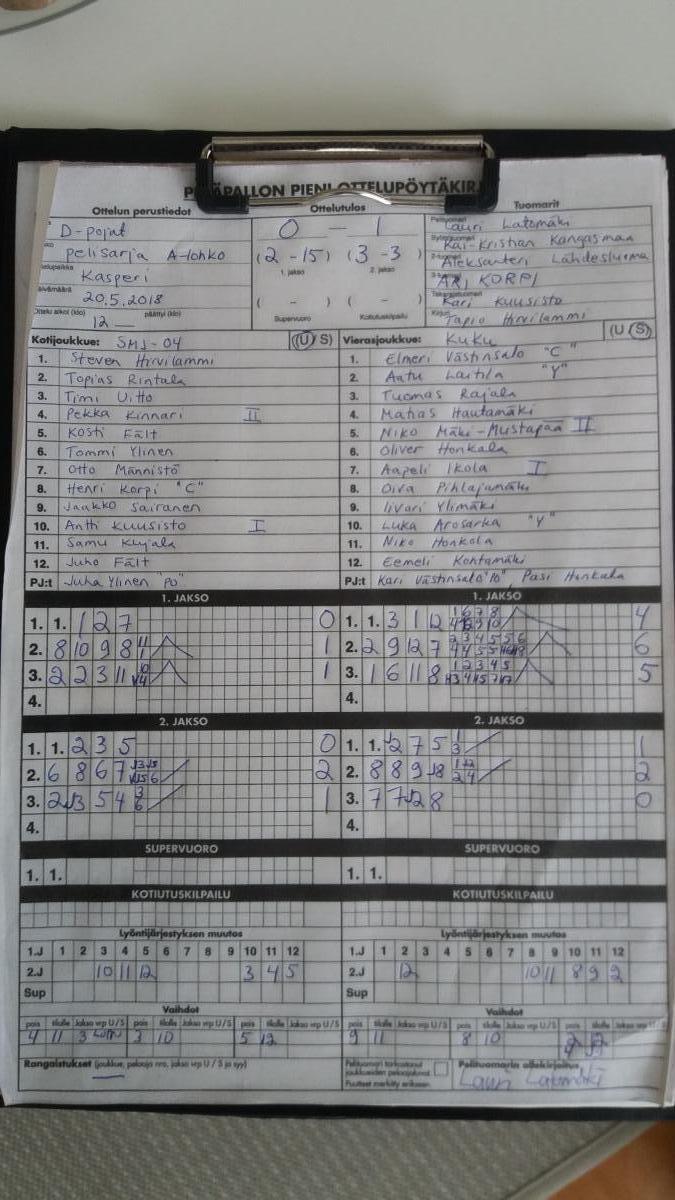 PESÄPALLON PIENI OTTELUPÖYTÄKIRJA
Ottelun perustiedot Ottelutulos Tuomarit
D-pojat 0 - 1 Pelituomari Lauri Latomäki
pelisarja A-lohko (2 - 15) (3 - 3) Kai-Kristian Kangasmaa
1. jakso 2. jakso Aleksanteri Lähdesluoma
Kasperi ARI KORPI
20.5.2018 ( - ) ( - ) Kari Kuusisto
Ottelu alkoi (klo) päättyi (klo) Supervuoro Kotiutuskilpailu Tapio Hirvilammi
12
Kotijoukkue: SMJ-04 (U S)
1. Steven Hirvilammi
2. Topias Rintala
3. Timi Uitto
4. Pekka Kinnari II
5. Kosti Fält
6. Tommi Ylinen
7. Otto Männistö
8. Henri Korpi "C"
9. Jaakko Sairanen
10. Antti Kuusisto I
11. Samu Kujala
12. Juho Fält
PJ:t Juha Ylinen "PO"
Vierasjoukkue: KuKu (U S)
1. Elmeri Västinsalo "C"
2. Aatu Laitila "Y"
3. Tuomas Rajala
4. Matias Hautamäki
5. Niko Mäki-Mustapää II
6. Oliver Honkala
7. Aapeli Ikola I
8. Oiva Pihlajamäki
9. Iivari Ylimäki
10. Luka Arosarka "Y"
11. Niko Honkola
12. Eemeli Kontamäki
PJ:t Kari Västinsalo "10", Pasi Honkala
1. JAKSO
1. 1. 1 2 7 0
2. 8 10 9 8 1
3. 2 2 3 11 1
4.
1. JAKSO
1. 1. 3 1 12 4
2. 2 9 12 7 6
3. 1 6 11 8 5
4.
2. JAKSO
1. 1. 2 3 5 0
2. 6 8 6 7 2
3. 2 5 4 1
4.
2. JAKSO
1. 1. 2 7 5 1
2. 8 8 9 2
3. 7 7 8 0
4.
SUPERVUORO SUPERVUORO
1. 1. 1. 1.
KOTIUTUSKILPAILU KOTIUTUSKILPAILU
Lyöntijärjestyksen muutos Lyöntijärjestyksen muutos
1.J 1 2 3 4 5 6 7 8 9 10 11 12 1.J 1 2 3 4 5 6 7 8 9 10 11 12
2.J 10 11 12 3 4 5 2.J 12 10 11 8 9 2
Sup Sup
Vaihdot Vaihdot
pois tilalle Jakso vrp U / S pois tilalle Jakso vrp U / S pois tilalle Jakso vrp U / S pois tilalle Jakso vrp U / S pois tilalle Jakso vrp U / S pois tilalle Jakso vrp U / S
4 11 3 3 10 5 12 9 11 8 10
Rangaistukset (joukkue, pelaaja nro, jakso vrp U / S ja syy) Pelituomari tarkastanut joukkueiden pelaajaluvut Pelituomarin allekirjoitus
Puutteet merkitty erikseen Lauri Latomäki